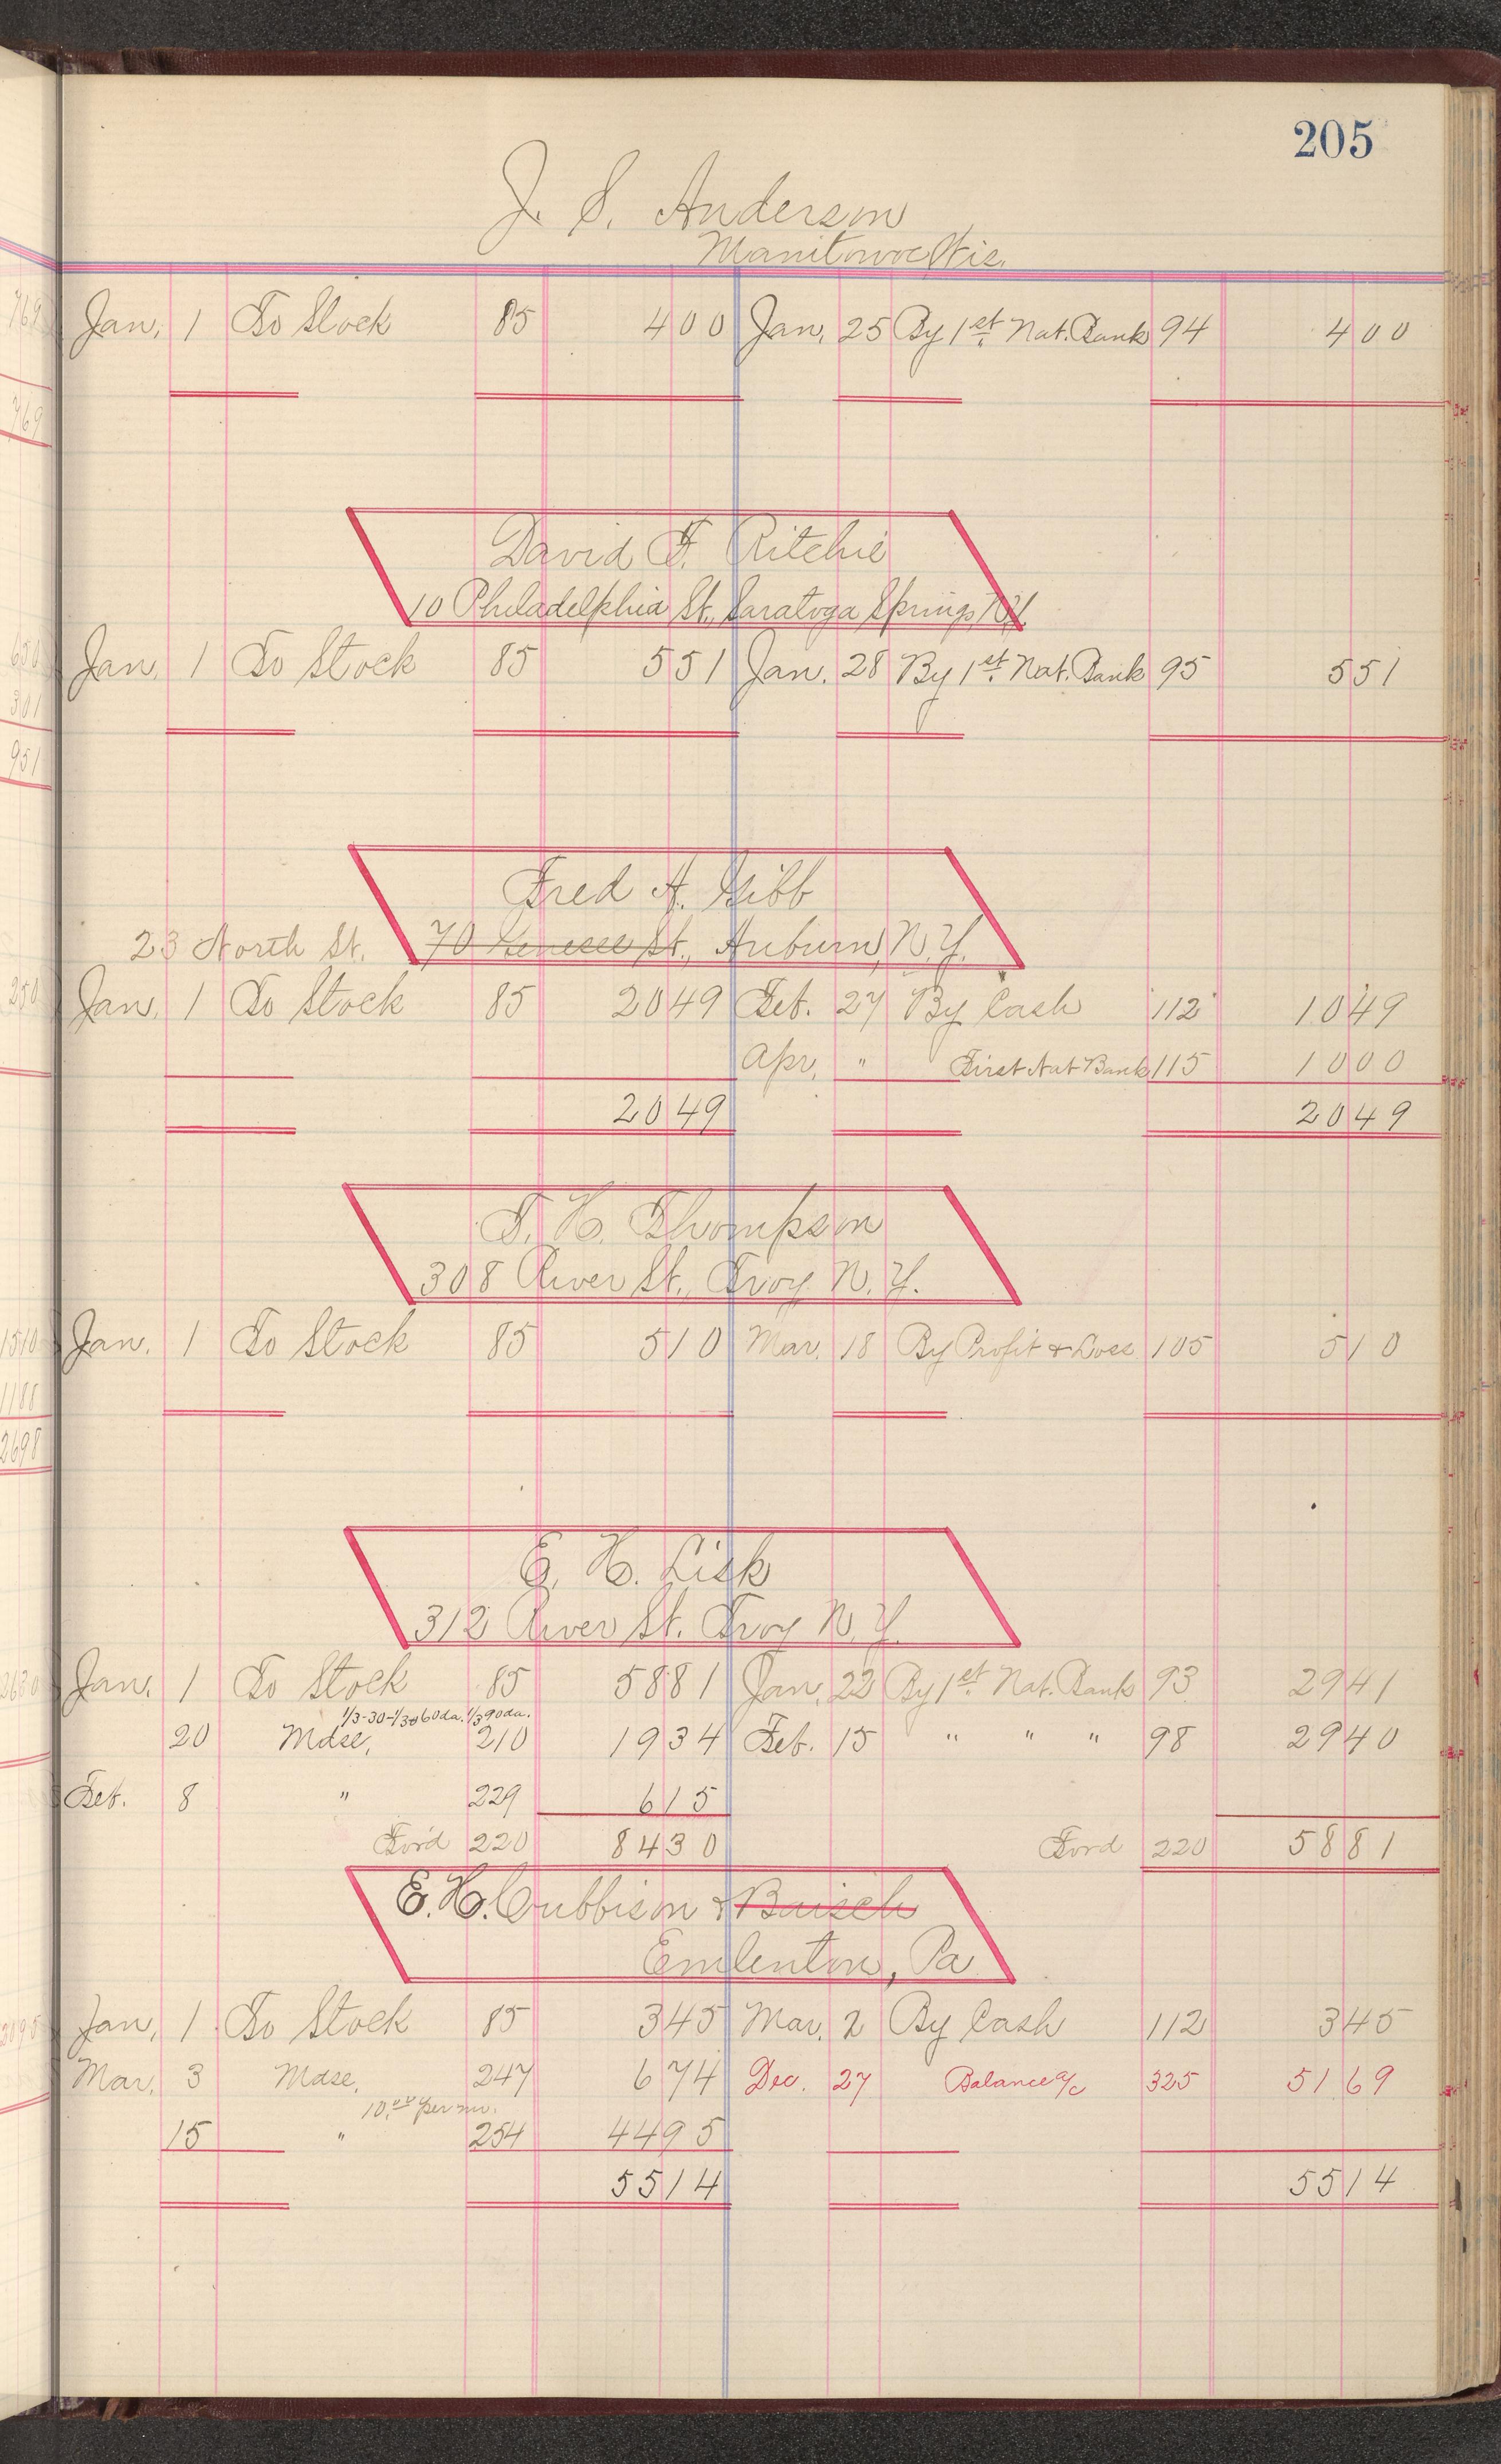 205
J. S. Anderson
Manitowoc Wis.
Jan. 1 To Stock 85 400 Jan. 25 By 1st Nat. Bank 94 400
David F. Ritchie
10 Philadelphia St., Saratoga Springs, N.Y.
Jan. 1 To Stock 85 551 Jan. 28 By 1st Nat. Bank 95 551
Fred A. Gibb
23 North St. 70 Genesee St., Auburn, N.Y.
Jan. 1 To Stock 85 2049 Feb. 27 By Cash 112 1049
Apr. " First Nat Bank 115 1000
2049 2049
T. H. Thompson
308 River St., Troy N.Y.
Jan. 1 To Stock 85 510 Mar. 18 By Profit & Loss 105 510
E. H. Lisk
312 River St. Troy N.Y.
Jan. 1 To Stock 85 5881 Jan. 22 By 1st Nat. Bank 93 2941
1/3-30-1/3-60da. 1/3 90da.
20 Mdse, 210 1934 Feb. 15 " " " 98 2940
Feb. 8 " 229 615
For'd 220 8430 Ford 220 5881
E. H. Cubbison & Baisch
Emlenton, Pa
Jan. 1 To Stock 85 345 Mar. 2 By Cash 112 345
Mar. 3 Mdse, 247 674 Dec. 27 Balance a/c 325 5169
10.00 per mo.
15 " 254 4495
5514 5514